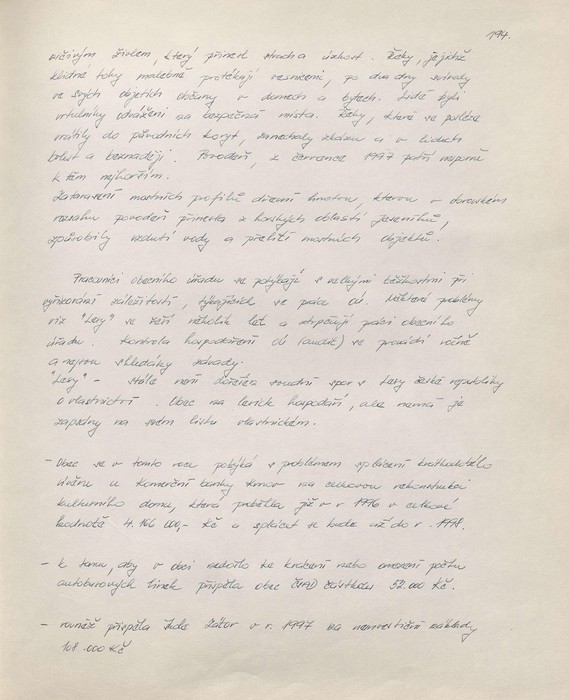 194.
ničivým živlem, který přinesl strach a úzkost. Řeky, jejichž
klidné toky malebně protékají vesnicemi, po dva dny svíraly
ve svých objetích občany v domech a bytech. Lidé byli
vrtulníky odváženi na bezpečná místa. Řeky, které se posléze
vrátily do původních koryt, zanechaly zkázu a v lidech
bolest a beznaděj. Povodeň, z července 1997 patří nesporně
k těm nejhorším.
Zatarasení mostních profilů dřevní hmotou, kterou v obrovském
rozsahu povodeň přinesla z horských oblastí Jeseníků,
způsobily vzdutí vody a přelití mostních objektů.
Pracovníci obecního úřadu se potýkají s velkými těžkostmi při
vyřizování záležitostí, týkajících se práce OÚ. Některé problémy
viz "Lesy" se řeší několik let a ztrpčují práci obecního
úřadu. Kontrola hospodaření OÚ (audit) se provádí ročně
a nejsou shledány závady.
"Lesy" - stále není dořešen soudní spor s Lesy české republiky
o vlastnictví. Obec na lesích hospodaří, ale nemá je
zapsány na svém listu vlastnickém.
- Obec se v tomto roce potýká s problémem splácení krátkodobého
úvěru u Komerční banky Krnov na celkovou rekonstrukci
kulturního domu, která proběhla již v r. 1996 v celkové
hodnotě 4.166 000,- Kč a splácet se bude až do r. 1998.
- k tomu, aby v obci nedošlo ke krácení nebo omezení počtu
autobusových linek přispěla obec ČSAD částkou 52.000 Kč.
- rovněž přispěla Zátor v r. 1997 na neinvestiční náklady
108.000 Kč